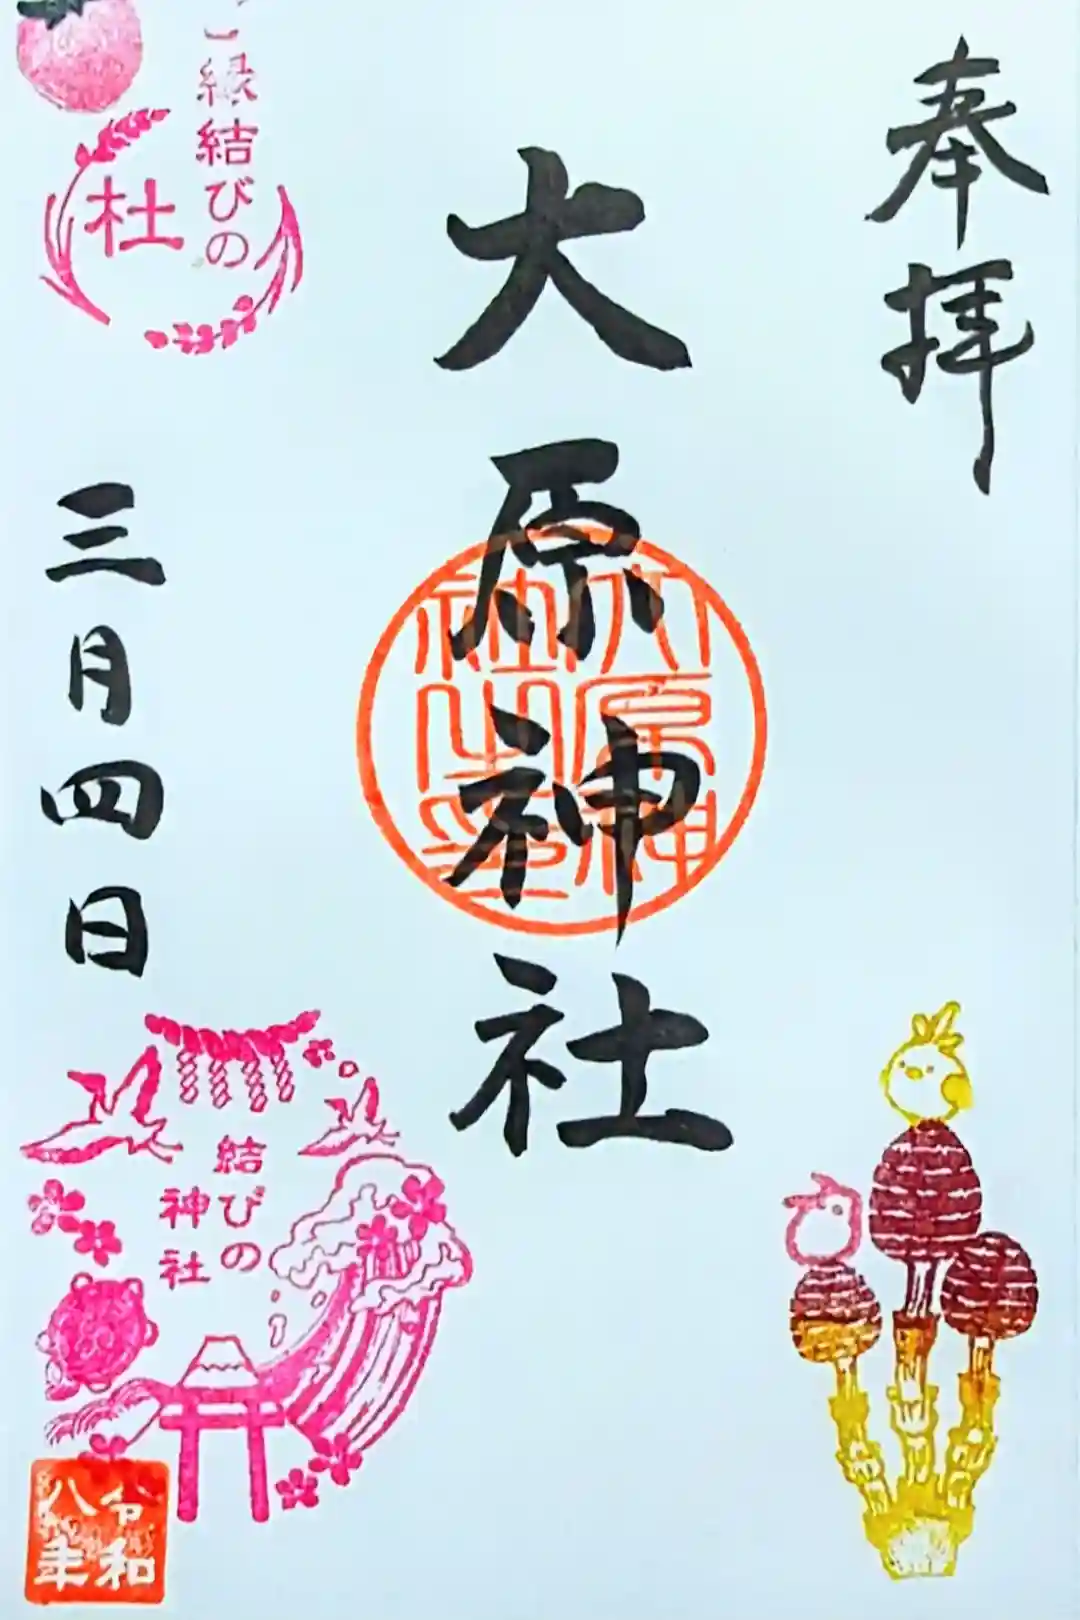 奉拝
大原神社
大原神
社之印
縁結びの
杜
三月四日
結びの
神社
令和
八年